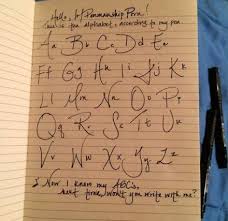 Hello, /r/Penmanship Porn!
This is the alphabet, according to my pen
Aa Bb Cc Dd Ee
Ff Gg Hh Ii Jj Kk
Ll Mm Nn Oo Pp
Qq Rr Ss Tt Uu
Vv Ww Xx Yy Zz
Now I know my ABCs,
next time, won't you write with me?